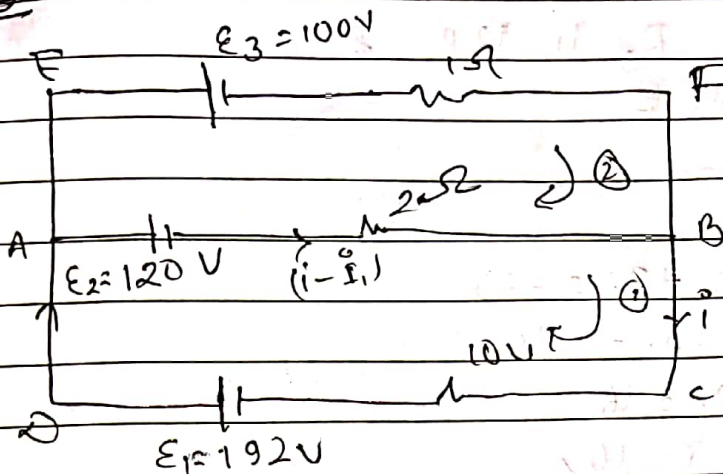 ε3 = 100V
E 1Ω F
2Ω ②
A B
ε2 = 120 V (i - i1)
① i
10V
D C
ε1 = 192V